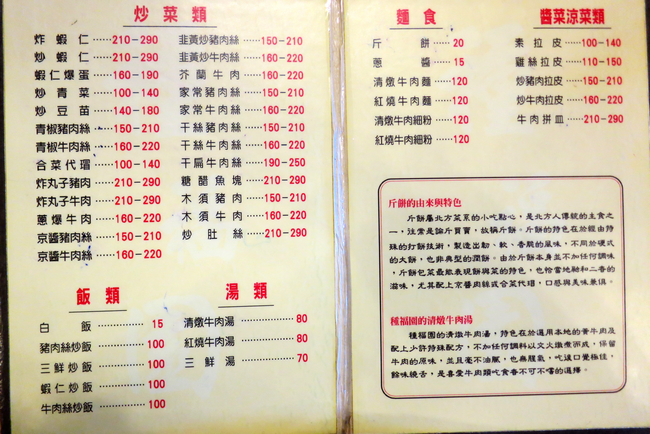 炒菜類
炸蝦仁……210-290
炒蝦仁……210-290
蝦仁爆蛋……160-190
炒青菜……100-140
炒豆苗……140-180
青椒豬肉絲……150-210
青椒牛肉絲……160-220
合菜代瑁……100-140
炸丸子豬肉……210-290
炸丸子牛肉……210-290
蔥爆牛肉……160-220
京醬豬肉絲……150-210
京醬牛肉絲……160-220
韭黃炒豬肉絲……150-210
韭黃炒牛肉絲……160-220
芥蘭牛肉……160-220
家常豬肉絲……150-210
家常牛肉絲……160-220
干絲豬肉絲……150-210
干絲牛肉絲……160-220
干扁牛肉絲……190-250
糖醋魚塊……210-290
木須豬肉……150-210
木須牛肉……160-220
炒肚絲……210-290
飯類
白飯……15
豬肉絲炒飯……100
三鮮炒飯……100
蝦仁炒飯……100
牛肉絲炒飯……100
湯類
清燉牛肉湯……80
紅燒牛肉湯……80
三鮮湯……70
麵食
斤餅……20
蔥醬……15
清燉牛肉麵……120
紅燒牛肉麵……120
清燉牛肉細粉……120
紅燒牛肉細粉……120
醬菜涼菜類
素拉皮……100-140
雞絲拉皮……110-150
炒豬肉拉皮……150-210
炒牛肉拉皮……160-220
牛肉拼皿……210-290
斤餅的由來與特色
斤餅屬北方菜系的小吃點心，是北方人傳統的主食之
一，往常是論斤買賣，故稱斤餅。斤餅的特色在於經由特
殊的打餅技術，製造出韌、軟、香脆的風味，不同於硬式
的大餅，也非典型的潤餅。由於斤餅本身並不加任何調味
，斤餅包菜最能表現餅與菜的特色，也恰當地融和二者的
滋味，尤其配上京醬肉絲或合菜代瑁，口感與美味兼俱。
種福園的清燉牛肉湯
種福園的清燉牛肉湯，特色在於選用本地的黃牛肉及
配上少許特殊配方，不加任何調料以文火燉煮而成，保留
牛肉的原味，並且毫不油膩，也無腥氣，吃淡口覺極佳，
餘味繞舌，是喜愛牛肉類吃食者不可不嚐的選擇。